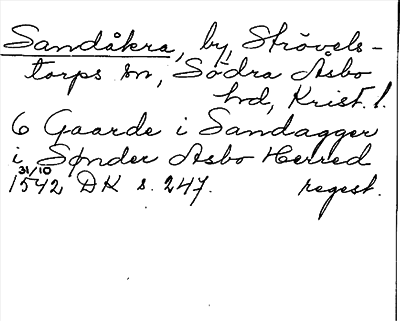 Sandåkra, by, Strövels-
torps sn, Södra Åsbo
hd, Krist. l.
6 Gaarde i Sandagger
i Sønder Asbo Herred
31/10
1542 DK s. 247. regest.